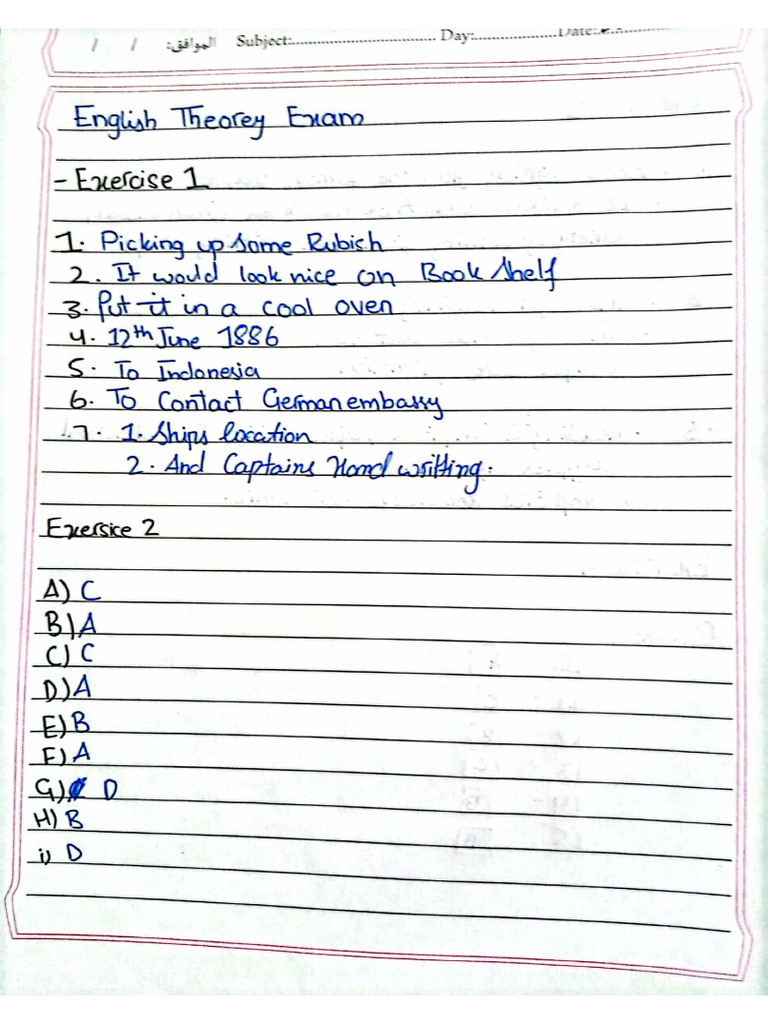 / / الموافق: Subject:................................... Day:.................... Date:....................
English Theorey Exam
- Exercise 1
1. Picking up some Rubish
2. It would look nice on Book shelf
3. Put it in a cool oven
4. 12th June 1886
5. To Indonesia
6. To Contact German embassy
7. 1. Ships location
2. And Captains Hand writting.
Exersice 2
A) C
B) A
C) C
D) A
E) B
F) A
G) D
H) B
i) D